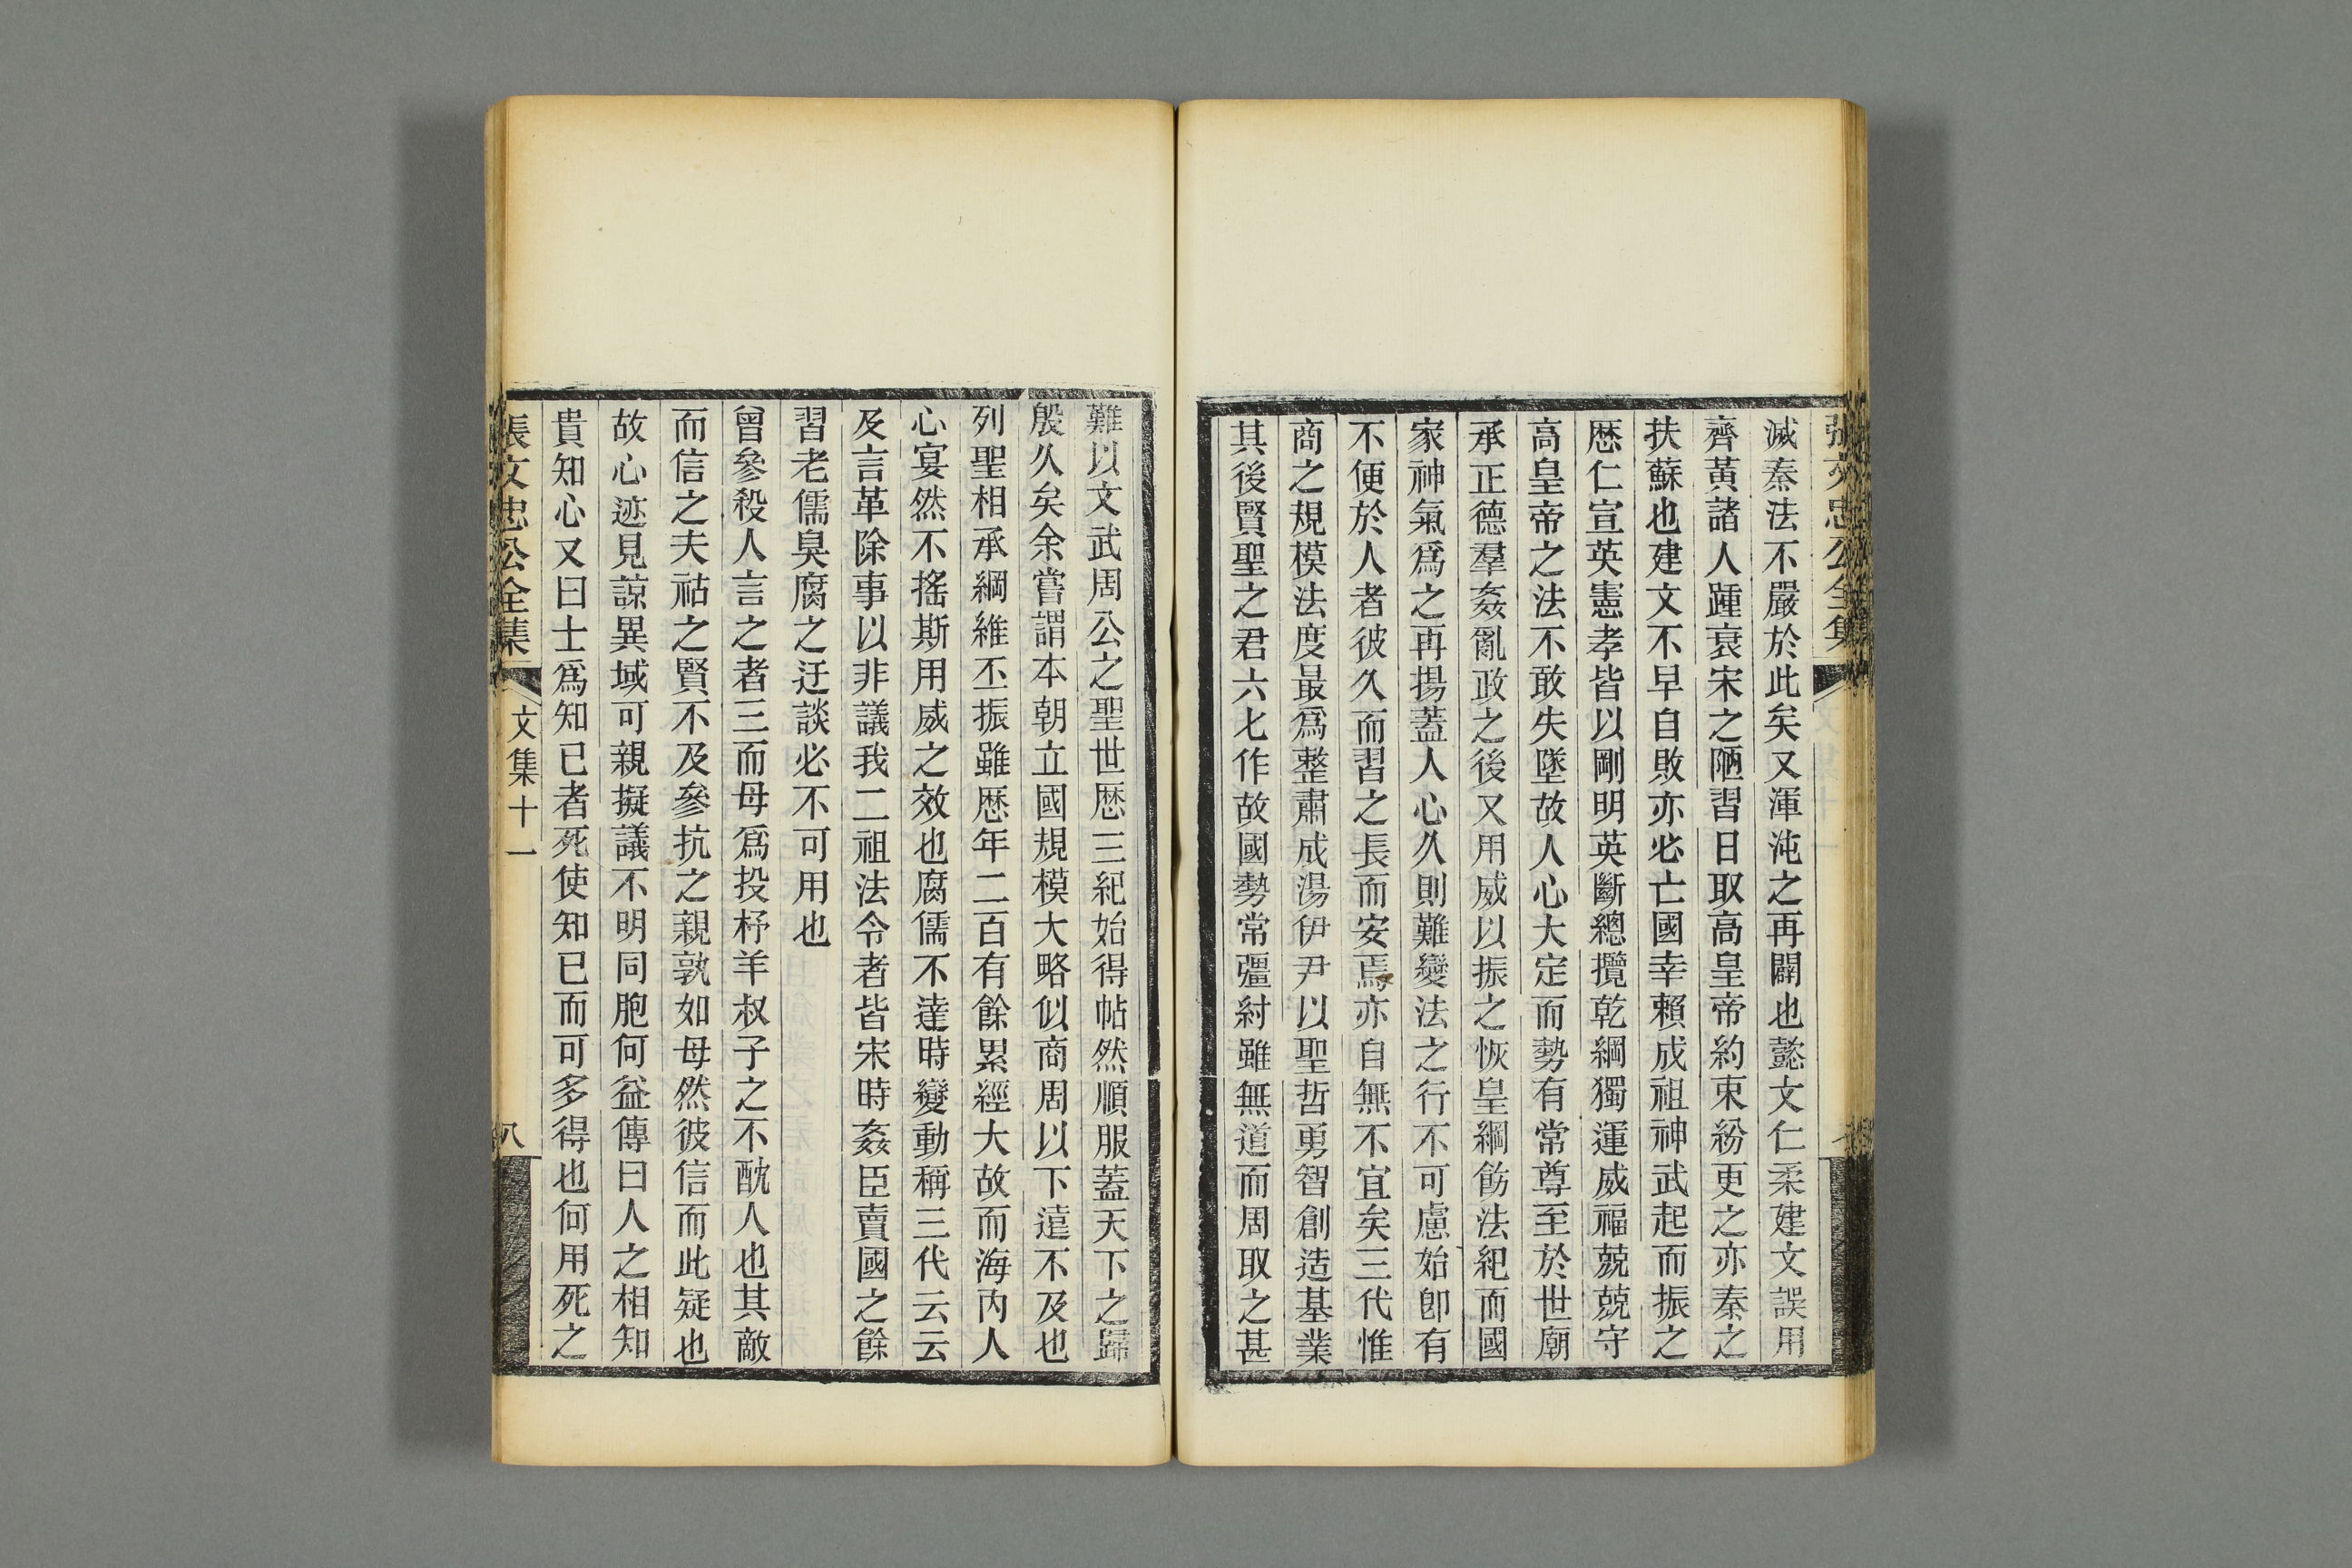 張文忠公全集
滅秦法不嚴於此矣又渾沌之再闢也懿文仁柔建文誤用
齊黃諸人踵衰宋之陋習日取高皇帝約束紛更之亦秦之
扶蘇也建文不早自敗亦必亡國幸賴成祖神武起而振之
歷仁宣英憲孝皆以剛明英斷總攬乾綱獨運威福兢兢守
高皇帝之法不敢失墜故人心大定而勢有常尊至於世廟
承正德羣姦亂政之後又用威以振之恢皇綱飭法紀而國
家神氣為之再揚蓋人心久則難變法之行不可慮始卽有
不便於人者彼久而習之長而安焉亦自無不宜矣三代惟
商之規模法度最為整肅成湯伊尹以聖哲勇智創造基業
其後賢聖之君六七作故國勢常彊紂雖無道而周取之甚
難以文武周公之聖世歷三紀始得帖然順服蓋天下之歸
殷久矣余嘗謂本朝立國規模大略似商周以下遠不及也
列聖相承綱維丕振雖歷年二百有餘累經大故而海內人
心宴然不搖斯用威之效也腐儒不達時變動稱三代云云
及言革除事以非議我二祖法令者皆宋時姦臣賣國之餘
習老儒臭腐之迂談必不可用也
曾參殺人言之者三而母爲投杼羊叔子之不酖人也其敵
而信之夫祜之賢不及參抗之親孰如母然彼信而此疑也
故心迹見諒異域可親擬議不明同胞何益傳曰人之相知
貴知心又曰士爲知己者死使知已而可多得也何用死之
張文忠公全集
文集十一
八